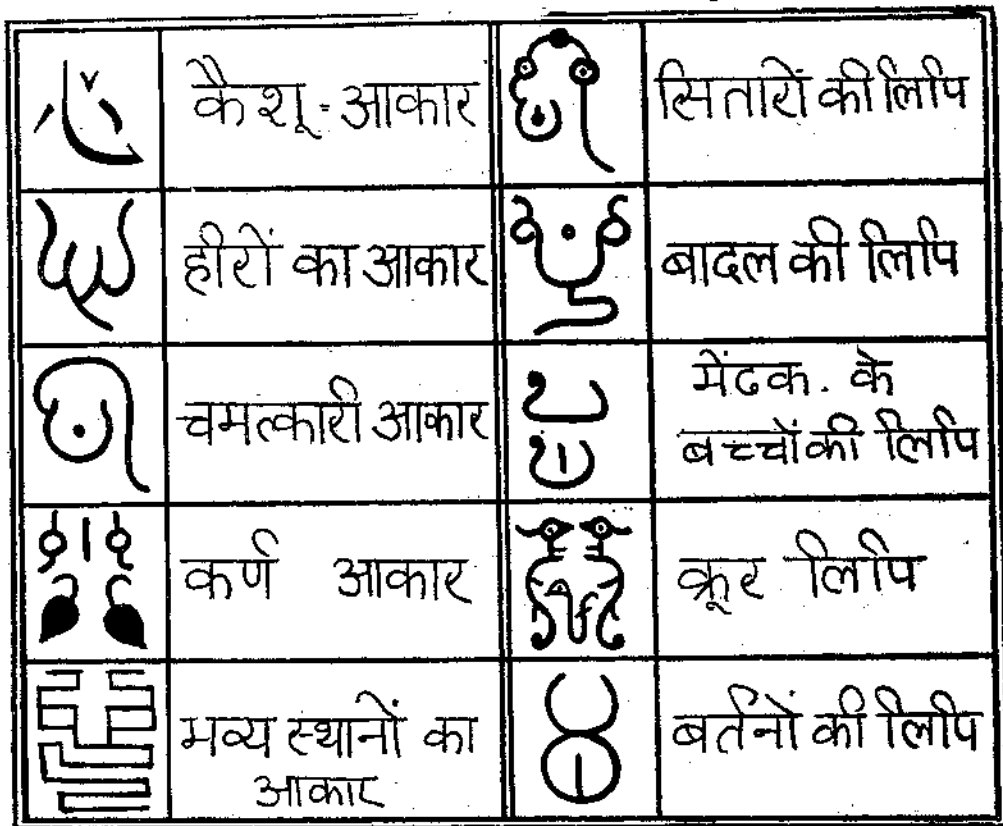 कैशू - आकार
सितारों की लिपि
हीरों का आकार
बादल की लिपि
चमत्कारी आकार
मेंढक . के
बच्चों की लिपि
कर्ण आकार
क्रूर लिपि
मव्य स्थानों का
आकार
बर्तनों की लिपि